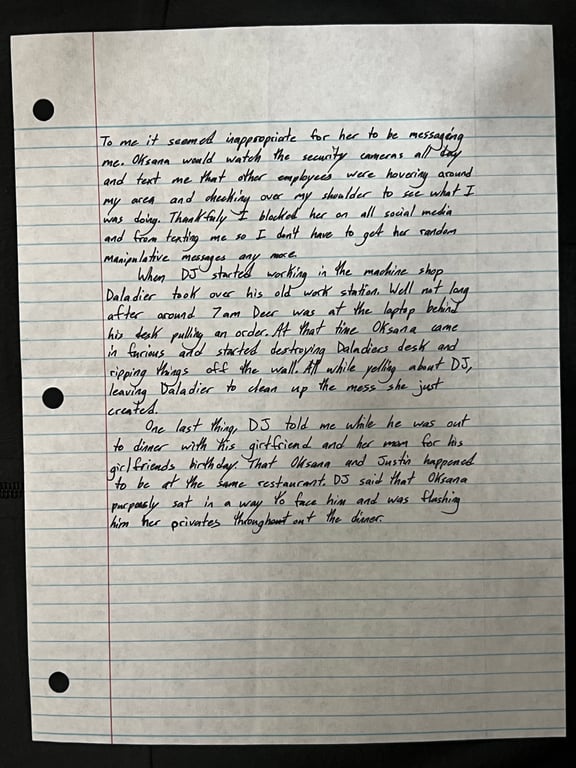 To me it seemed inappropriate for her to be messageing
me. Oksana would watch the security cameras all day
and text me that other employees were hovering around
my area and checking over my shoulder to see what I
was doing. Thankfuly I blocked her on all social media
and from texting me so I don't have to get her random
manipulative messages any more.
When DJ started working in the machine shop
Daladier took over his old work station. Well not long
after around 7am Deer was at the laptop behind
his desk pulling an order. At that time Oksana came
in furious and started destroying Daladiers desk and
ripping things off the wall. All while yelling about DJ,
leaving Daladier to clean up the mess she just
created.
One last thing, DJ told me while he was out
to dinner with his girlfriend and her mom for his
girlfriends birthday. That Oksana and Justin happened
to be at the same restaurant. DJ said that Oksana
purposly sat in a way to face him and was flashing
him her privates throughout out the dinner.